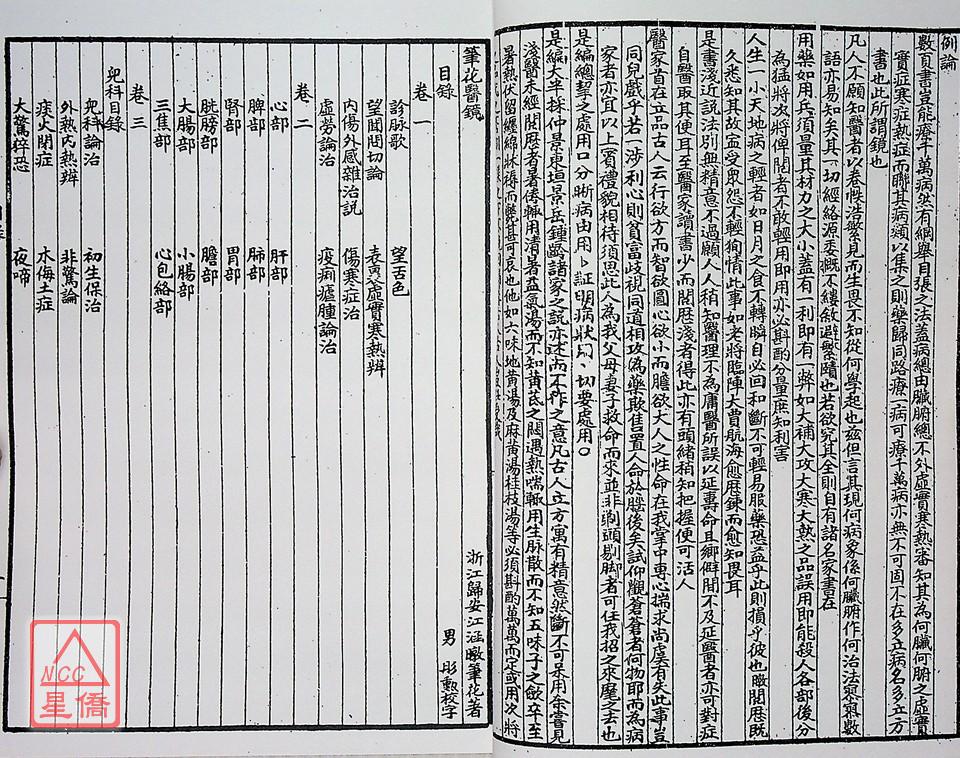 例論
數頁書豈能療千萬病然有綱舉目張之法蓋病總由臟腑總不外虛實寒熱審知其為何臟何腑之虛實
寒症熱症而聯其病類以集之則藥歸同路療一病可療千萬病亦無不可固不在多立病名多立方
書也此所謂鏡也
凡人不願知醫者以卷帙浩繁見而生畏不知從何學起也茲但言其現何病象係何臟腑作何治法寥寥數
語亦易知矣其一切經絡源委概不縷敘避繁賾也若欲究其全則自有諸名家書在
用藥如用兵須量其材力之大小蓋有一利即有一弊如大補大攻大寒大熱之品誤用即能殺人各部後分
為猛將次將俾閱者不敢輕用即用亦必斟酌分量庶知利害
人生一小天地病之輕者如日月之食不轉瞬自必回和斷不可輕易服藥恐益乎此則損乎彼也暾閱歷既
久悉知其故孟受眾怨不輕狥情此事如老將臨陣大賈航海愈歷鍊而愈知畏耳
是書淺近說法別無精意不過願人人稍知醫理不為庸醫所誤以延壽命且鄉僻間不及延醫者亦可對症
自醫取其便耳至醫家讀書少而閱歷淺者得此亦有頭緒稍知把握便可活人
醫家首在立品古人云行欲方而智欲圓心欲小而膽欲大人之性命在我掌中專心揣求尚虞有失此事豈
同兒戲乎若一涉利心則貧富歧視同道相攻偽藥欺售置人命於膜後矣試仰觀蒼蒼者何物耶而為病
家者亦宜以上賓禮貌相待須思此人為我父母妻子救命而來並非剃頭剔脚者可任我招之來麾之去也
是編總挈之處用口分晰病由用、証明病狀切要處用○
是編大半採仲景東垣景岳鍾齡諸家之說亦述而不作之意凡古人立方寓有精意然斷不可呆用余嘗見
淺醫未經閱歷者暑倦輒用清暑益氣湯而不知黃芪之閉遇熱喘輒用生脉散而不知五味子之斂卒至
暑熱伏留纏綿牀褥而斃甚可哀也他如六味地黃湯及麻黃湯桂枝湯等必須斟酌萬萬而定或用次將
筆花醫鏡
浙江歸安江涵暾筆花著
目錄
男 彤勲校字
卷一
診脉歌 望舌色
望聞問切論 表裏虛實寒熱辨
內傷外感雜治說 傷寒症治
虛勞論治 疫痢瘧腫論治
卷二
心部 肝部
脾部 肺部
腎部 胃部
膀胱部 膽部
大腸部 小腸部
三焦部 心包絡部
卷三
兒科目錄
兒科論治 初生保治
外熱內熱辨 非驚論
痰火閉症 木侮土症
大驚猝恐 夜啼
NCC
星僑